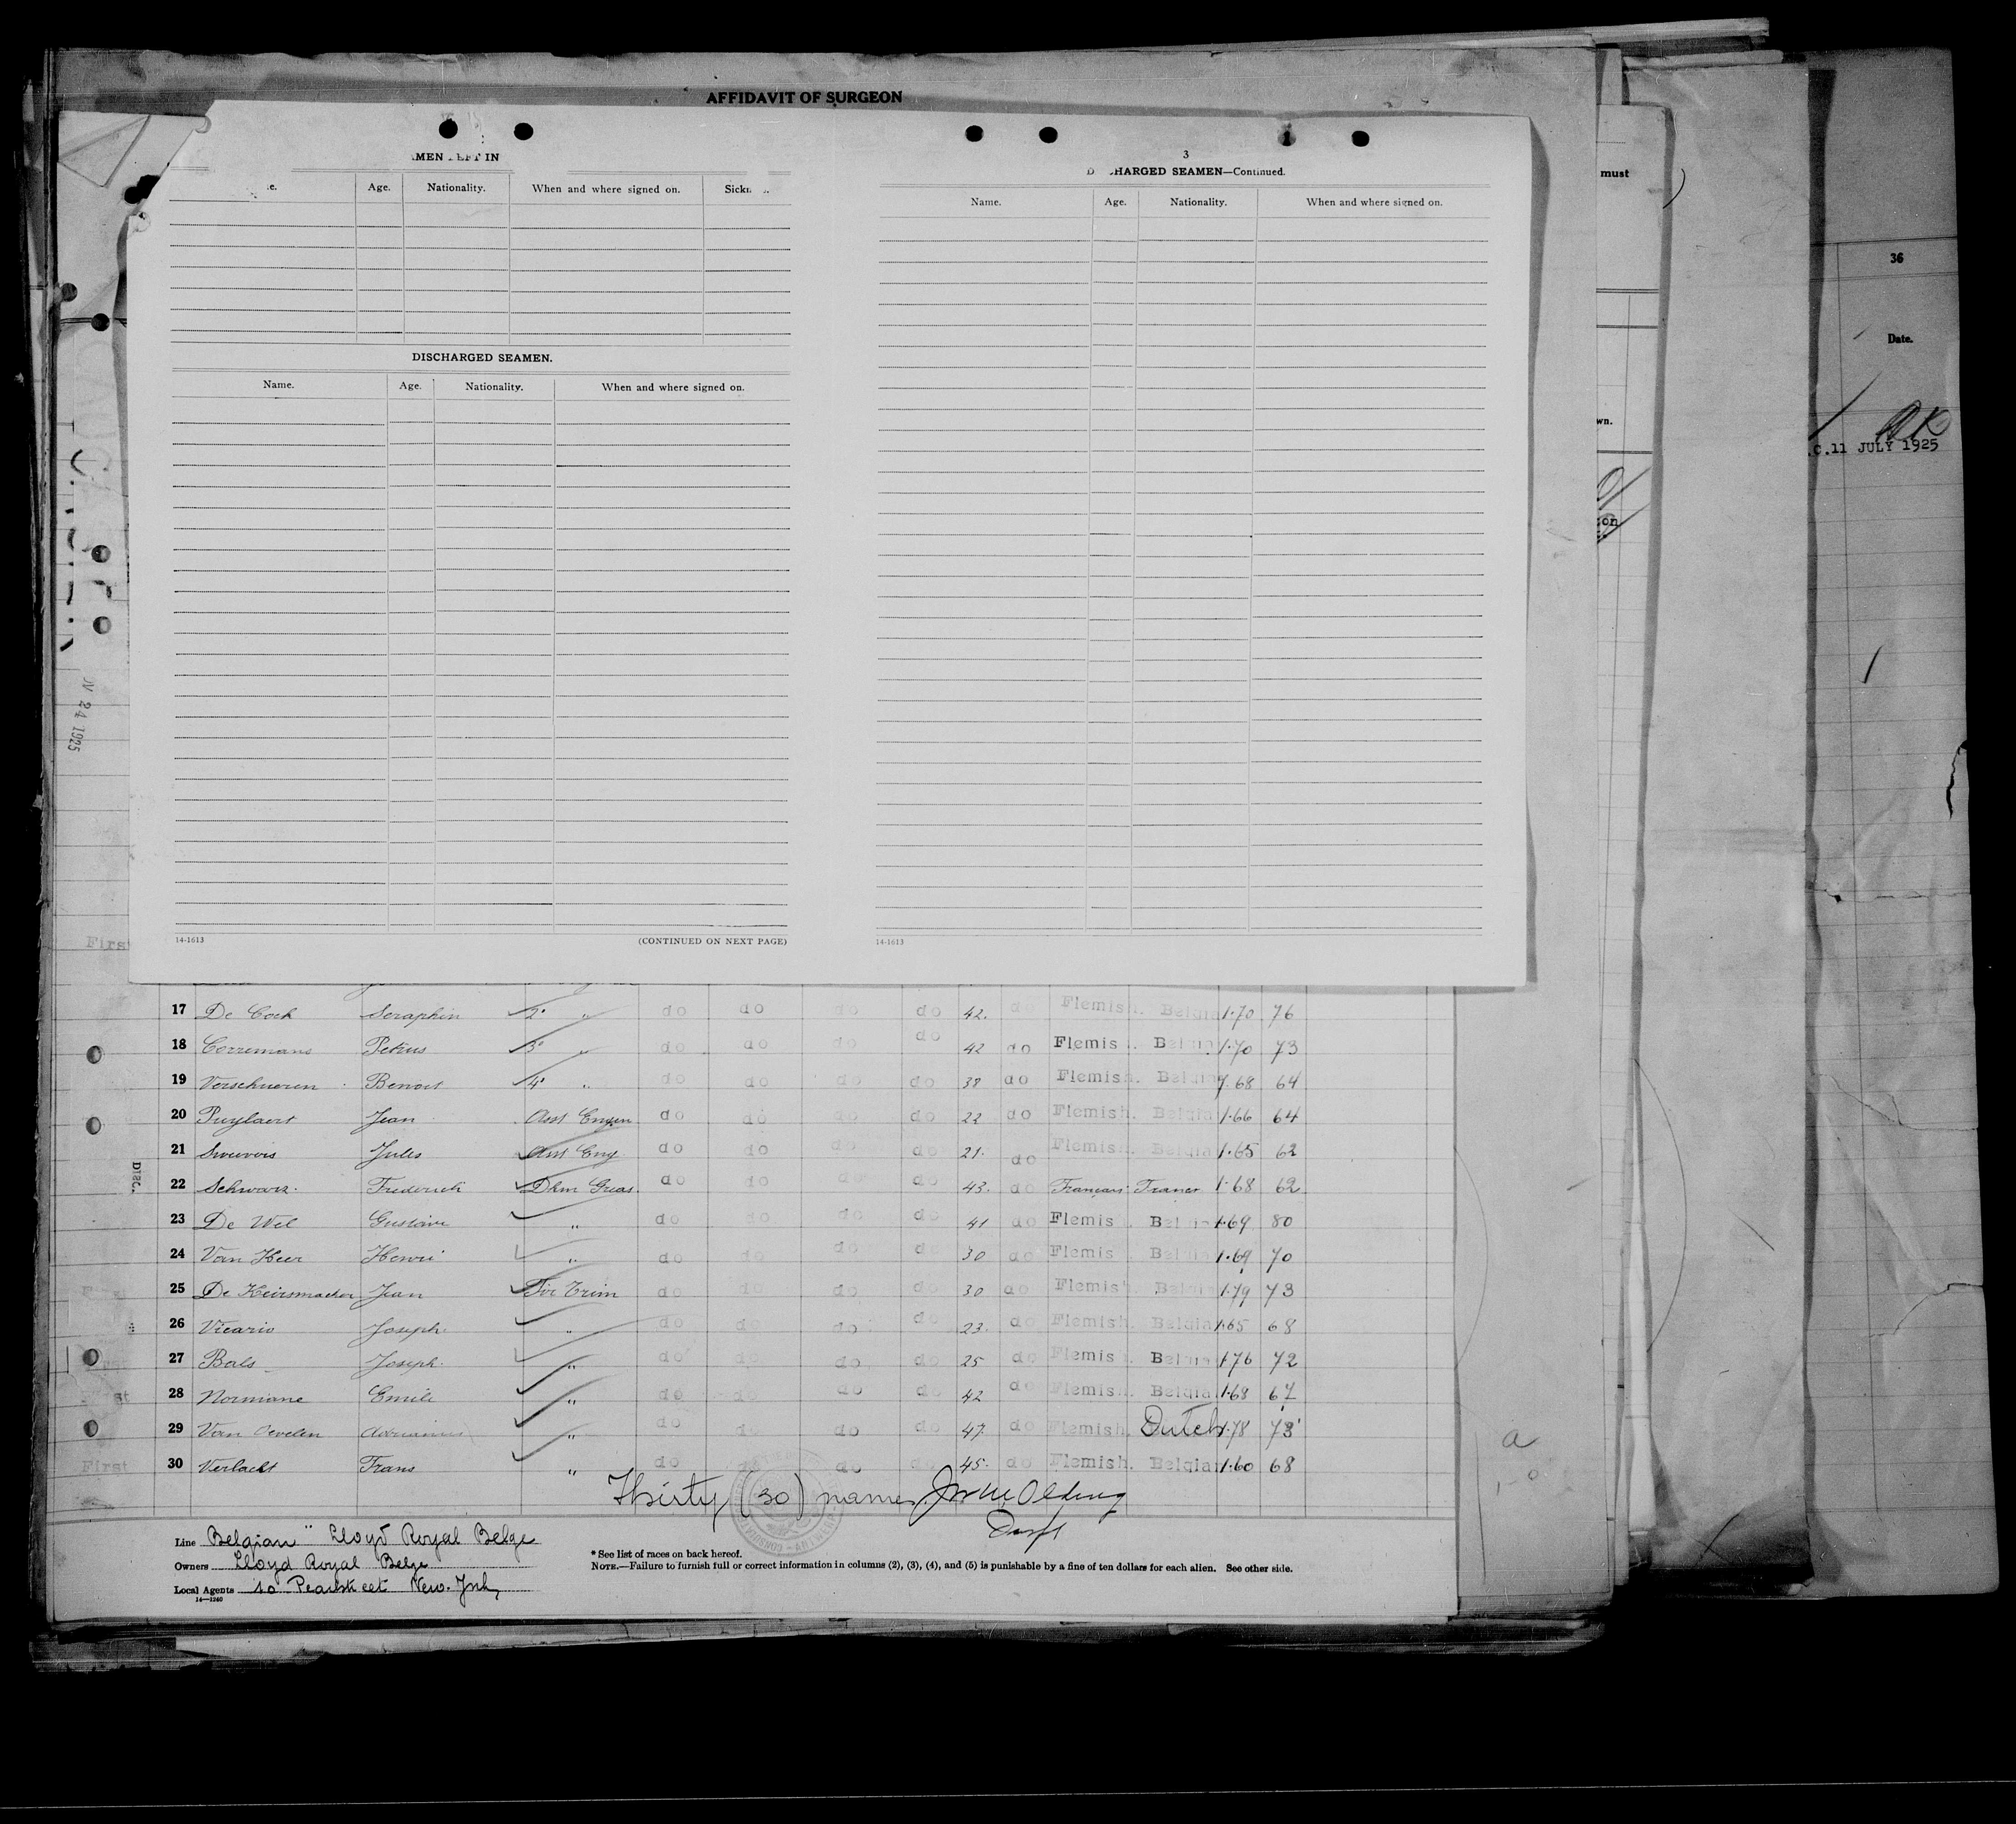 AFFIDAVIT OF SURGEON
MEN LEFT IN
Age. Nationality. When and where signed on.
DISCHARGED SEAMEN.
Name. Age. Nationality. When and where signed on.
14-1613 (CONTINUED ON NEXT PAGE)
3
DISCHARGED SEAMEN—Continued.
Name. Age. Nationality. When and where signed on.
14-1613
must
wn.
son
36
Date.
OK
.C.11 JULY 1925
24 1925
First
17 De Cock Seraphin 2° " do do do do 42. do Flemish. Belgia 1.70 76
18 Corremans Petrus 3° " do do do do 42 do Flemis . Belgia 1.70 73
19 Verschueren Benoit 4° " do do do do 38 do Flemish. Belgia 1.68 64
20 Puylaert Jean Asst Engen do do do do 22 do Flemish. Belgia 1.66 64
21 Jules Asst Eng do do do do 21. do Flemish. Belgia 1.65 62
Disc. 22 Schwarz Frederich Dkm Greas. do do do do 43. do Français 1.68 62
23 De Wel Gustave " do do do do 41 do Flemis . Belgia 1.69 80
24 Van Keer Henri " do do do do 30 do Flemis . Belgia 1.69 70
25 De Keirsmacher Jean Fir Trim do do do do 30 do Flemish Belgia 1.79 73
26 Vicario Joseph. " do do do do 23. do Flemish. Belgia 1.65 68
27 Bals Joseph. " do do do do 25 do Flemis . Belgia 1.76 72
28 Normiane Emile " do do do do 42 do Flemish. Belgia 1.68 67
29 Van Oevelen Adrianus " do do do do 47. do Flemish. Dutch 1.78 73
First 30 Verlackt Frans " do do do do 45. do Flemish. Belgian 1.60 68
Thirty (30) names
Line Belgian " Lloyd Royal Belge
Owners Lloyd Royal Belge
Local Agents 10 Pearlstreet New-York
14—1240
* See list of races on back hereof.
NOTE.—Failure to furnish full or correct information in columns (2), (3), (4), and (5) is punishable by a fine of ten dollars for each alien. See other side.